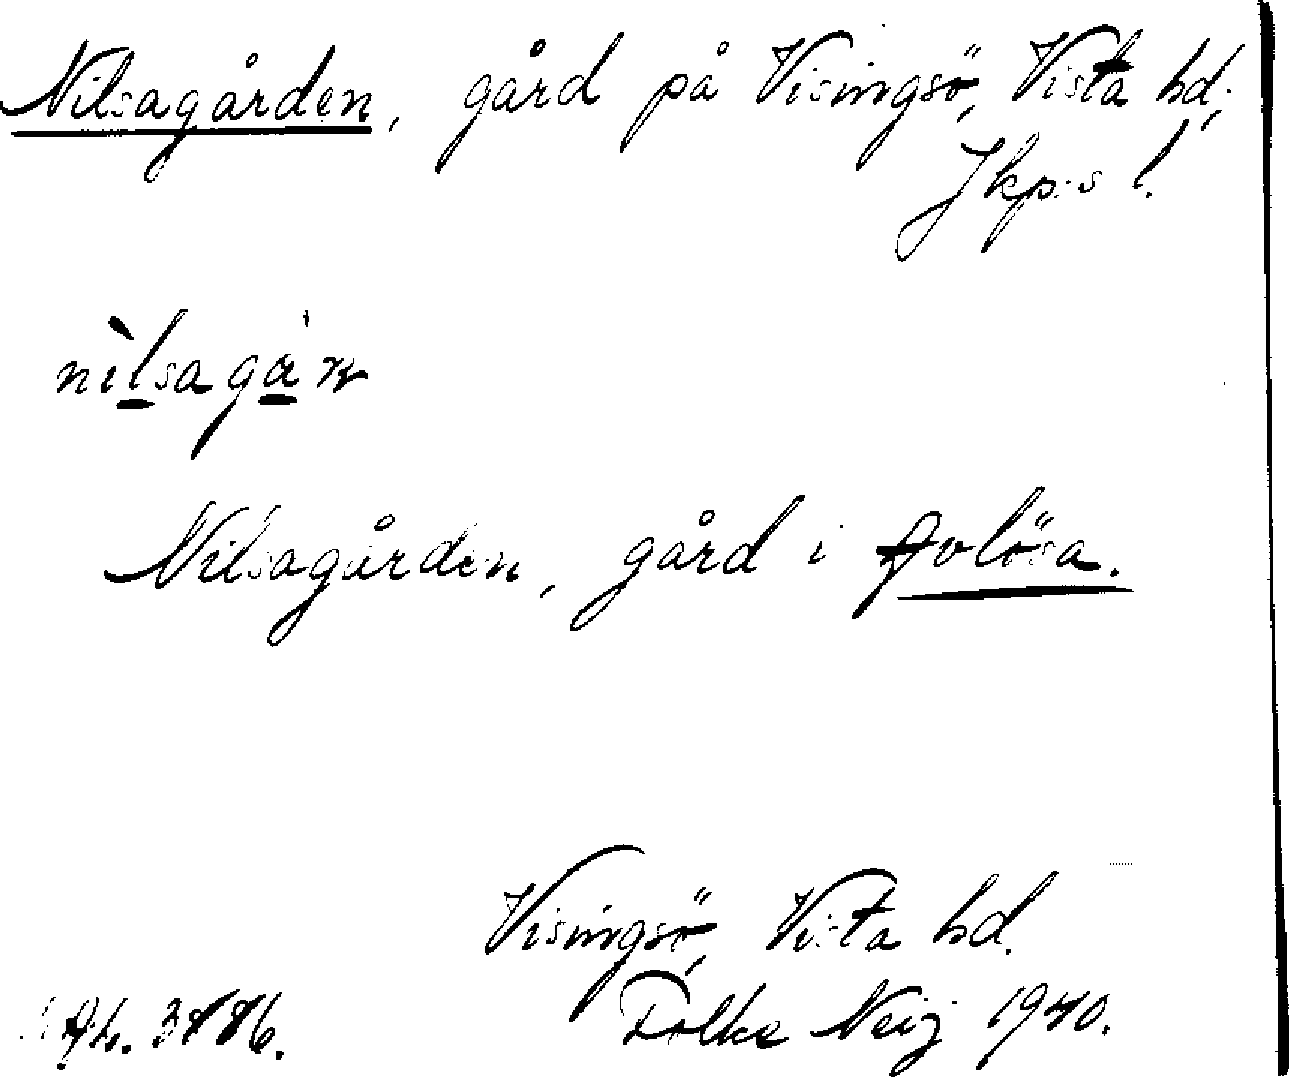 Nilsagården, gård på Visingsö, Vista hd,
Jkp:s l.
Nilsagården, gård i Avlösa.
Visingsö, Vista hd.
Folke Neij 1940.